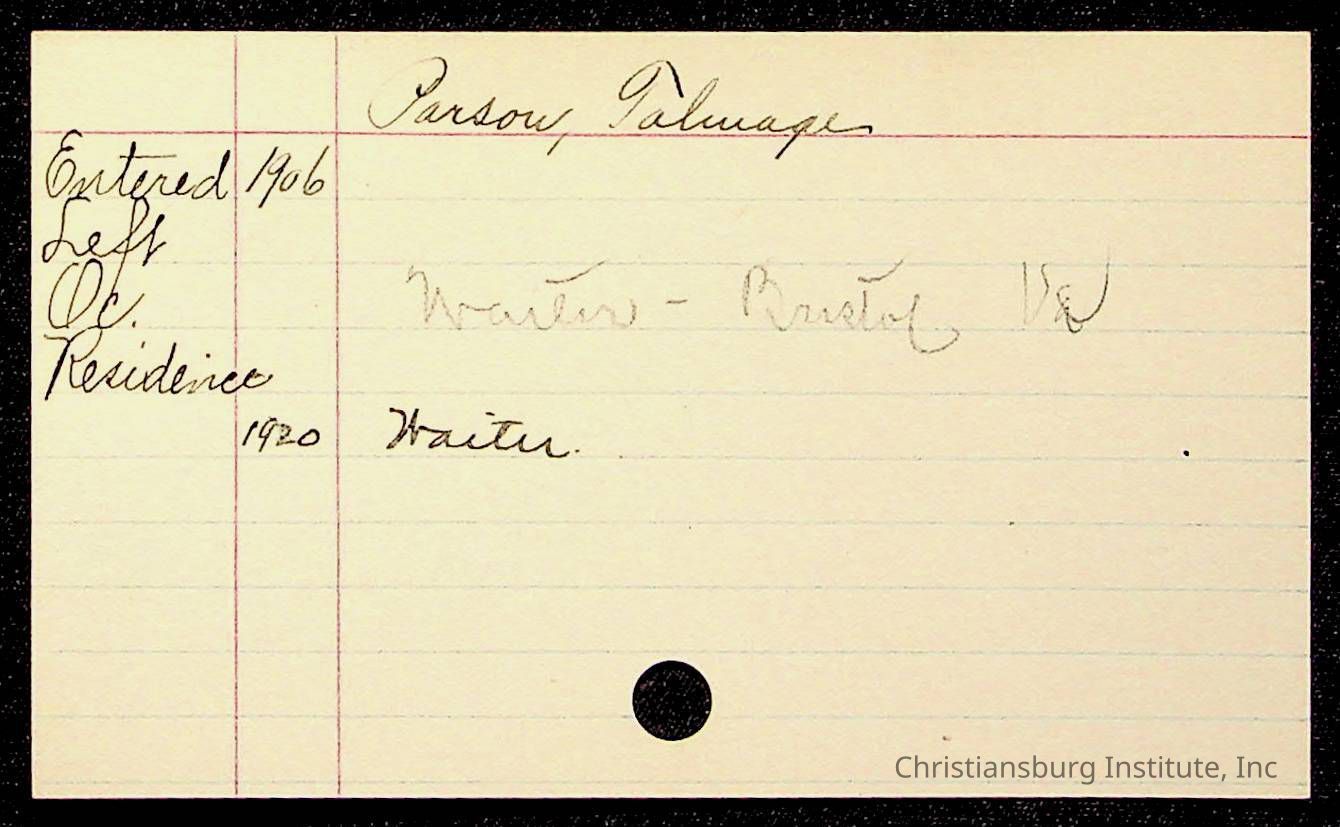 Parson, Talmage
Entered 1906
Left
Oc. Waiter - Bristol Va
Residence
1920 Waiter.
Christiansburg Institute, Inc